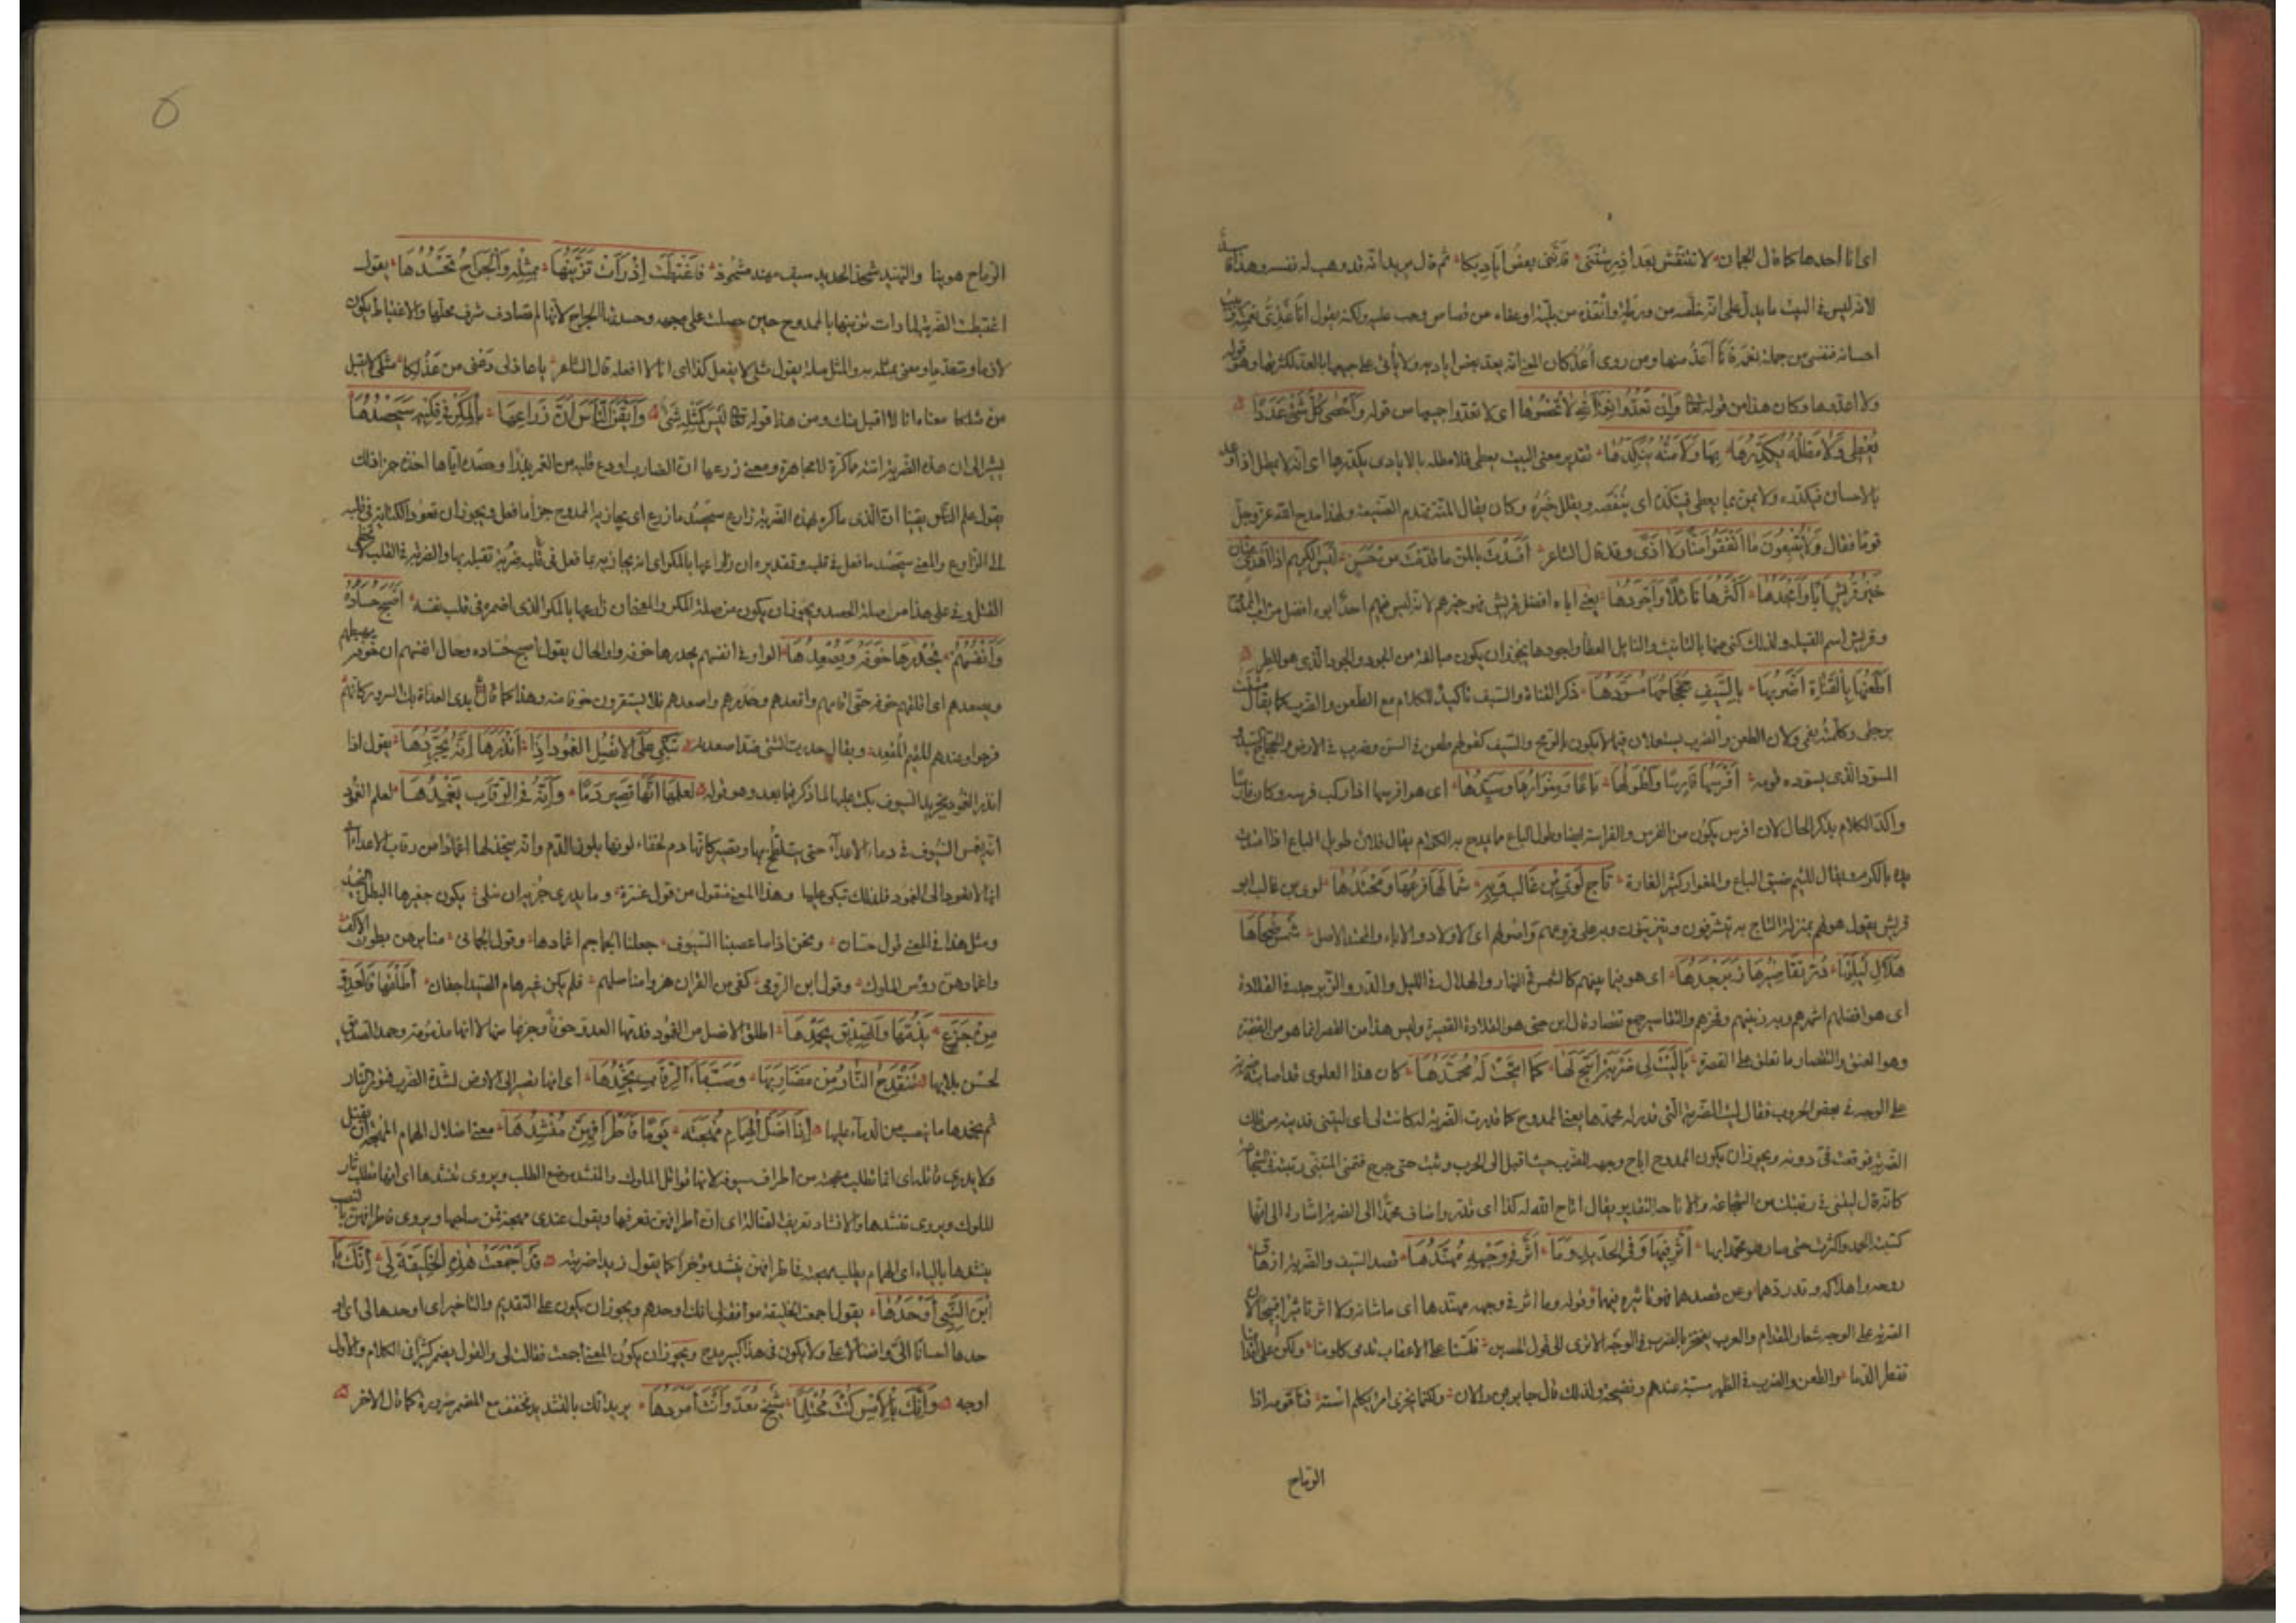 اى انا احدها كما قال الجمان لا تنتقنى بعد اذ رشتنى فاننى بعض اياديكا ثم قال يريد انه قد وهب له نفسه وهذا
لانه ليس فى البيت ما يدل على انه خلصه من ورطة وأنقذه من بلية او عفاه عن قصاص وجب عليه ولكنه يقول انا غذى نعمته
احسانه فنفسى من جملة نعمه فانا أعد منها ومن روى أعد كان المعنى انه يعد بعض اياديه ولا يأتى على جميعها بالعد لكثرتها وهو قوله
ولا اعددها وكان هذا من قوله تعالى وان تعدوا نعمة الله لا تحصوها اى لا تعدوا جميعها من قوله وأحصى كل شئ عددا
يعطى ولا مطله يكدرها بها ولا منه ينكدها تقدير معنى البيت يعطى فلا مطله بالايادى يكدرها اى انه لا يمطل اذا وعد
بالاحسان فيكدره ولا يمن بما يعطى فينكده اى ينغصه ويقلل خيره وكان يقال المنة تهدم الصنيعة ولهذا مدح الله عز وجل
قوما فقال ولا يتبعون ما انفقوا منا ولا اذى وقد قال الشاعر أفسدت بالمن ما قدمت من حسن ليس الكريم اذا أسدى بمنان
خير قريش ابا وأمجدها أكثرها نائلا وأجودها يعنى اباه افضل قريش فهو خيرهم لانه ليس فيهم احد ابوه افضل من اب الممدوح
وقريش اسم القبيلة ولذلك كنى عنها بالتانيث والنايل العطا واجودها يجوز ان يكون مبالغة من الجود والجود الذى هو المطر
أطعنها بالقناة أضربها بالسيف جحجاحها مسودها ذكر القناة والسيف تأكيدا للكلام مع الطعن والضرب كما يقال مشيت
برجلى وكلمته بفى ولان الطعن والضرب يستعملان فيما لا يكون بالرمح والسيف كقولهم طعن فى السن وضرب فى الارض والجحجاح السيد
المسود الذى يسوده قومه أفرسها فارسا وأطولها باعا ومغوارها وسيدها اى هو افرسها اذا ركب فرسه وكان فارسا
واكد الكلام بذكر الحال لان افرس يكون من الفرس والفراسة ايضا وطول الباع ما يمدح به الكرام يقال فلان طويل الباع اذا امتدت
يده بالكرم ويقال للئيم ضيق الباع والمغوار كثير الغارة تاج لؤى بن غالب وبه سما لها فرعها ومحتدها لوى بن غالب ابو
قريش يقول هو لهم بمنزلة التاج به يتشرفون ويتزينون وبه على فروعهم واصولهم اى الاولاد والاباء والمحتد الاصل شمس ضحاها
هلال ليلتها در تقاصيرها زبرجدها اى هو فيما بينهم كالشمس فى النهار والهلال فى الليل والدر والزبرجد فى القلادة
اى هو افضلهم اشهرهم وبه زينهم وفخرهم والتقاصير جمع تقصار قال ابن جنى هو القلادة القصيرة وليس هذا من القصر انما هو من القصرة
وهو العنق والتقصار ما تعلق على القصرة يا ليت لى ضربة أتيح لها كما أتيحت له محمدها كان هذا العلوى قد اصابته ضربة
على الوجه فى بعض الحروب فقال ليت الضربة التى قدر لها محمدها يعنى الممدوح كما قدرت الضربة له كانت لى اى ليتنى فديته من تلك
الضربة فوقعت فى دونه ويجوز ان يكون الممدوح اتاح وجهه للضرب حيث اقبل الى الحرب وثبت حتى جرح فتمنى المتنبى رتبته فى الشجاعة
كانه قال ليتنى فى رتبتك من الشجاعة والاتاحة التقدير يقال اتاح الله له كذا اى قدر واضاف محمدا الى الضربة اشارة الى انها
كسبت الحمد واكثرت حتى صار هو محمدا بها أثر فيها وفى الحديد وما أثر فى وجهه مهندها قصد السيف والضربة ازهاق
روحه واهلاكه وقد ردهما عن قصدهما فهو تاثيره فيهما وقوله وما اثر فى وجهه مهندها اى ما شانه ولا اثر تاثيرا قبيحا لان
الضربة على الوجه شعار المقدام والعرب يفتخر بالضرب فى الوجه الا ترى الى قول الحصين فلسنا على الاعقاب تدمى كلومنا ولكن على اقدامنا
تقطر الدما والطعن والضرب فى الظهر مسبة عندهم وفضيحة ولذلك قال جابر بن رالان ولكنما يخزى امرؤ يكلم استه قنا قومه اذا
الرماح
الرماح هوينا والتهنيد شحذ الحديد سيف مهند مشحوذ فاغتبطت إذ رأت تزينها بمثله والجراح تحسدها يقول
اغتبطت الضربة لما رأت تزينها بالممدوح حين حصلت على وجهه وحسدتها الجراح لانها لم تصادف شرف محلها والاغتباط يكون
لازما ومتعديا ومعنى بمثله به والمثل صلة يقول مثلى لا يفعل كذا اى انا لا افعله قال الشاعر يا عاذلى دعنى من عذلكا مثلى لا يقبل
من مثلكا معناه انا لا اقبل منك ومن هذا قوله تعالى ليس كمثله شئ وأيقن الناس أن زارعها بالمكر فى قلبه سيحصدها
يشير الى ان هذه الضربة اتته ماكرة لا مجاهرة ومعنى زرعها ان الضارب اودع قلبه من الضربة بذرا وحصده اياها اخذه جزاء ذلك
يقول علم الناس يقينا ان الذى ماكره بهذه الضربة زارع سيحصد ما زرع اى يجازيه الممدوح جزاء ما فعل ويجوز ان تعود الكناية فى قلبه
الى الزارع والمعنى سيحصد ما فعل فى قلبه وتقديره ان زارعها بالمكر اى انه يجازيه بما فعل فى قلبه ضربة تقتله بها والضربة فى القلب لا تخطى
القتل وفى على هذا من صلة الحصد ويجوز ان يكون من صلة المكر والمعنى ان زارعها بالمكر الذى اضمره فى قلب نفسه أصبح حساده
وأنفسهم يحدرها خوفه ويصعدها الواو فى انفسهم يحدرها خوفه واو الحال يقول اصبح حساده وحال انفسهم ان خوفه يهبطهم
ويصعدهم اى اقلقهم خوفه حتى اقامهم واقعدهم وحدرهم واصعدهم فلا يستقرون خوفا منه وهذا كما قال ابدى العداة بك السرور كانهم
فرحوا وعندهم المقيم المقعد ويقال حدرت الشئ ضد اصعدته تبكى على الانصل الغمود إذا أنذرها أنه يجردها يقول اذا
انذر الغمود بتجريد السيوف بكت عليها لما ذكر فيما بعد وهو قوله لعلمها أنها تصير دما وأنه فى الرقاب يغمدها لعلم الغمود
انه يغمس السيوف فى دماء الاعداء حتى تتلطخ بها وتصير كانها دم لخفاء لونها بلون الدم وانه يتخذ لها اغمادا من رقاب الاعداء
انها لا تعود الى الغمود فلذلك تبكى عليها وهذا المعنى منقول من قول عنترة وما يدرى جرية ان نبلى يكون جفيرها البطل النجيد
ومثل هذا فى المعنى قول حسان ونحن اذا ما عصينا السيوف جعلنا الجماجم اغمادها وقول الجمانى منابرهن بطون الاكف
واغمادهن رؤس الملوك وقول ابن الرومى كفى من العز ان هزوا مناصلهم فلم يكن غير هام الصيد اجفان أطلقها فالعدو
من جزع يذمها والصديق يحمدها اطلق الانصل من الغمود فذمها العدو خوفا وجزعا منها لا انها مذمومة وحمدها الصديق
لحسن بلائها تنقدح النار من مضاربها وصب ماء الرقاب يخمدها اى انها تصير الى الارض لشدة الضرب فتورى النار
ثم يخمدها ما يصب من الدماء عليها إذا أضل الهمام مهجته يوما فأطرافهن منشدها معنى اضلال الهمام المهجة ان يقتل
ولا يدرى قاتله اى انما تطلب مهجته من اطراف سيوفه لانها قواتل الملوك والمنشد موضع الطلب ويروى تنشدها اى انها تطلب ثار
الملوك ويروى تنشدها والانشاد تعريف الضالة اى ان اطرافهن تعرفها ويقول عندى مهجة فمن صاحبها ويروى فاطرافهن بالنصب
ينشدها بالياء اى الهمام يطلب مهجته فاطرافهن ينشد مؤخرا كما يقول زيدا ضربته قد أجمعت هذه الخليقة لى أنك يا
ابن النبى أوحدها يقول اجمعت الخليقة موافقة لى انك اوحدهم ويجوز ان يكون على التقديم والتاخير اى اوحدها لى اى
حدها احسانا الى وافضالا على ولا يكون فى هذا كبير مدح ويجوز ان يكون المعنى اجمعت فقالت لى والقول يضمر كثيرا فى الكلام والاول
اوجه وأنك بالأمس كنت محتلما شيخ معد وأنت أمردها يريد انك بالتشديد فخفف مع المضمر ضرورة كما قال الاخر